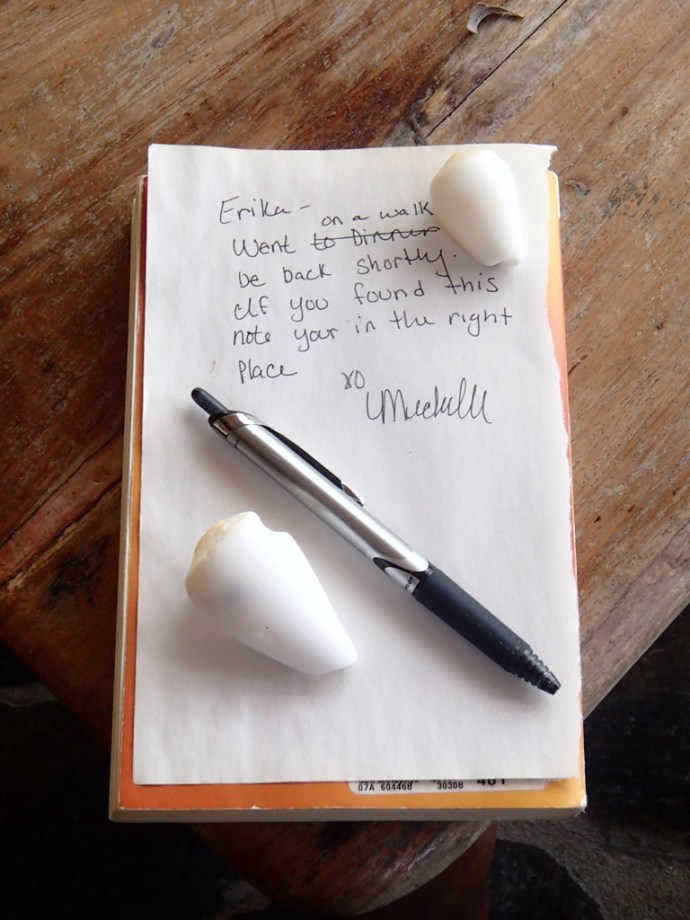 Erika -
on a walk
Went to Dinner
be back shortly.
If you found this
note your in the right
Place
xo
Michelle
07A 604468 30308 401